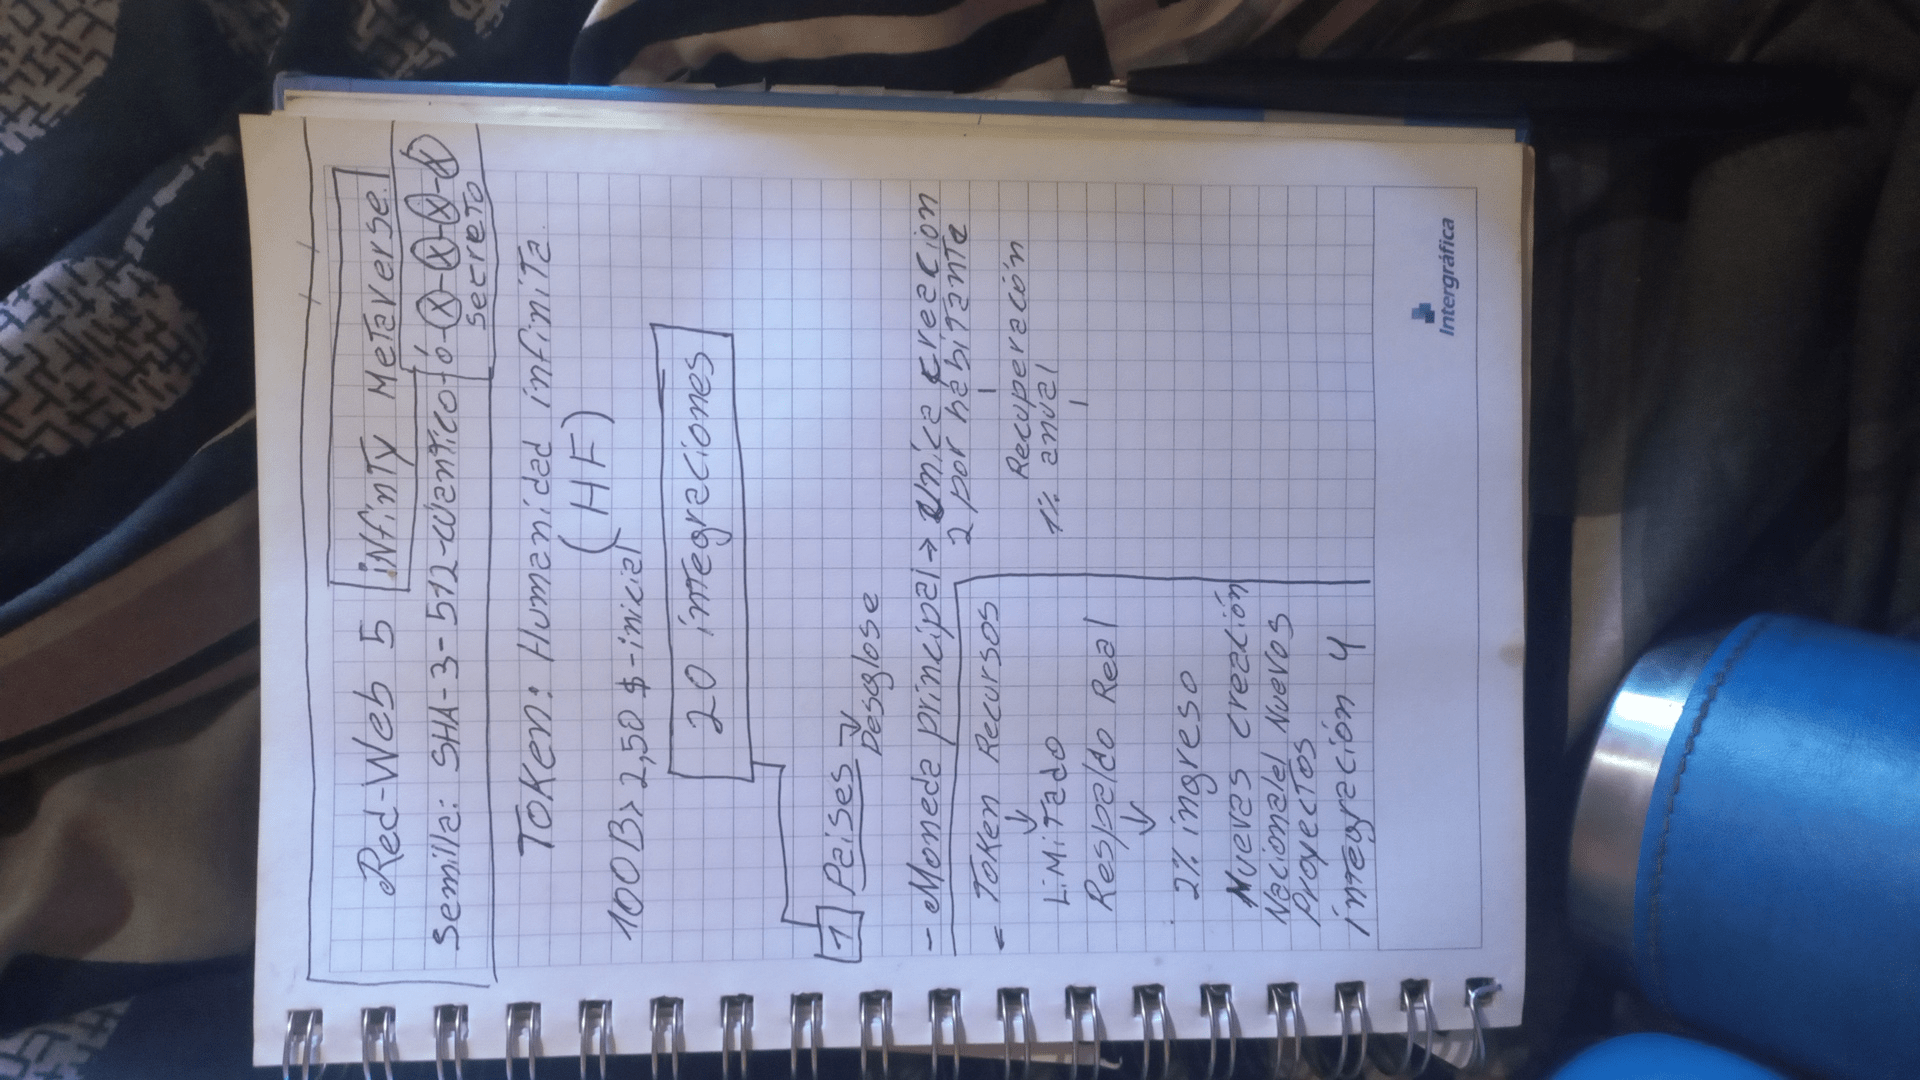 Red-Web 5 iNfinTy MeTaverse.
Semilla: SHA-3-512-cuantico-ó-X-X-X-X
secreTo
ToKen: Humanidad infiniTa.
(HF)
100B> 2,50 $-inicial
20 inTegraciones
1 Paises
Desglose
- Moneda principal → Unica creacion
2 por habiTanTe
Recuperación
1% anual
= ToKen Recursos
LiMiTado
Respaldo Real
2% ingreso
Nuevas creación
Nacionales Nuevos
ProyecTos
inTegración 4
Intergráfica